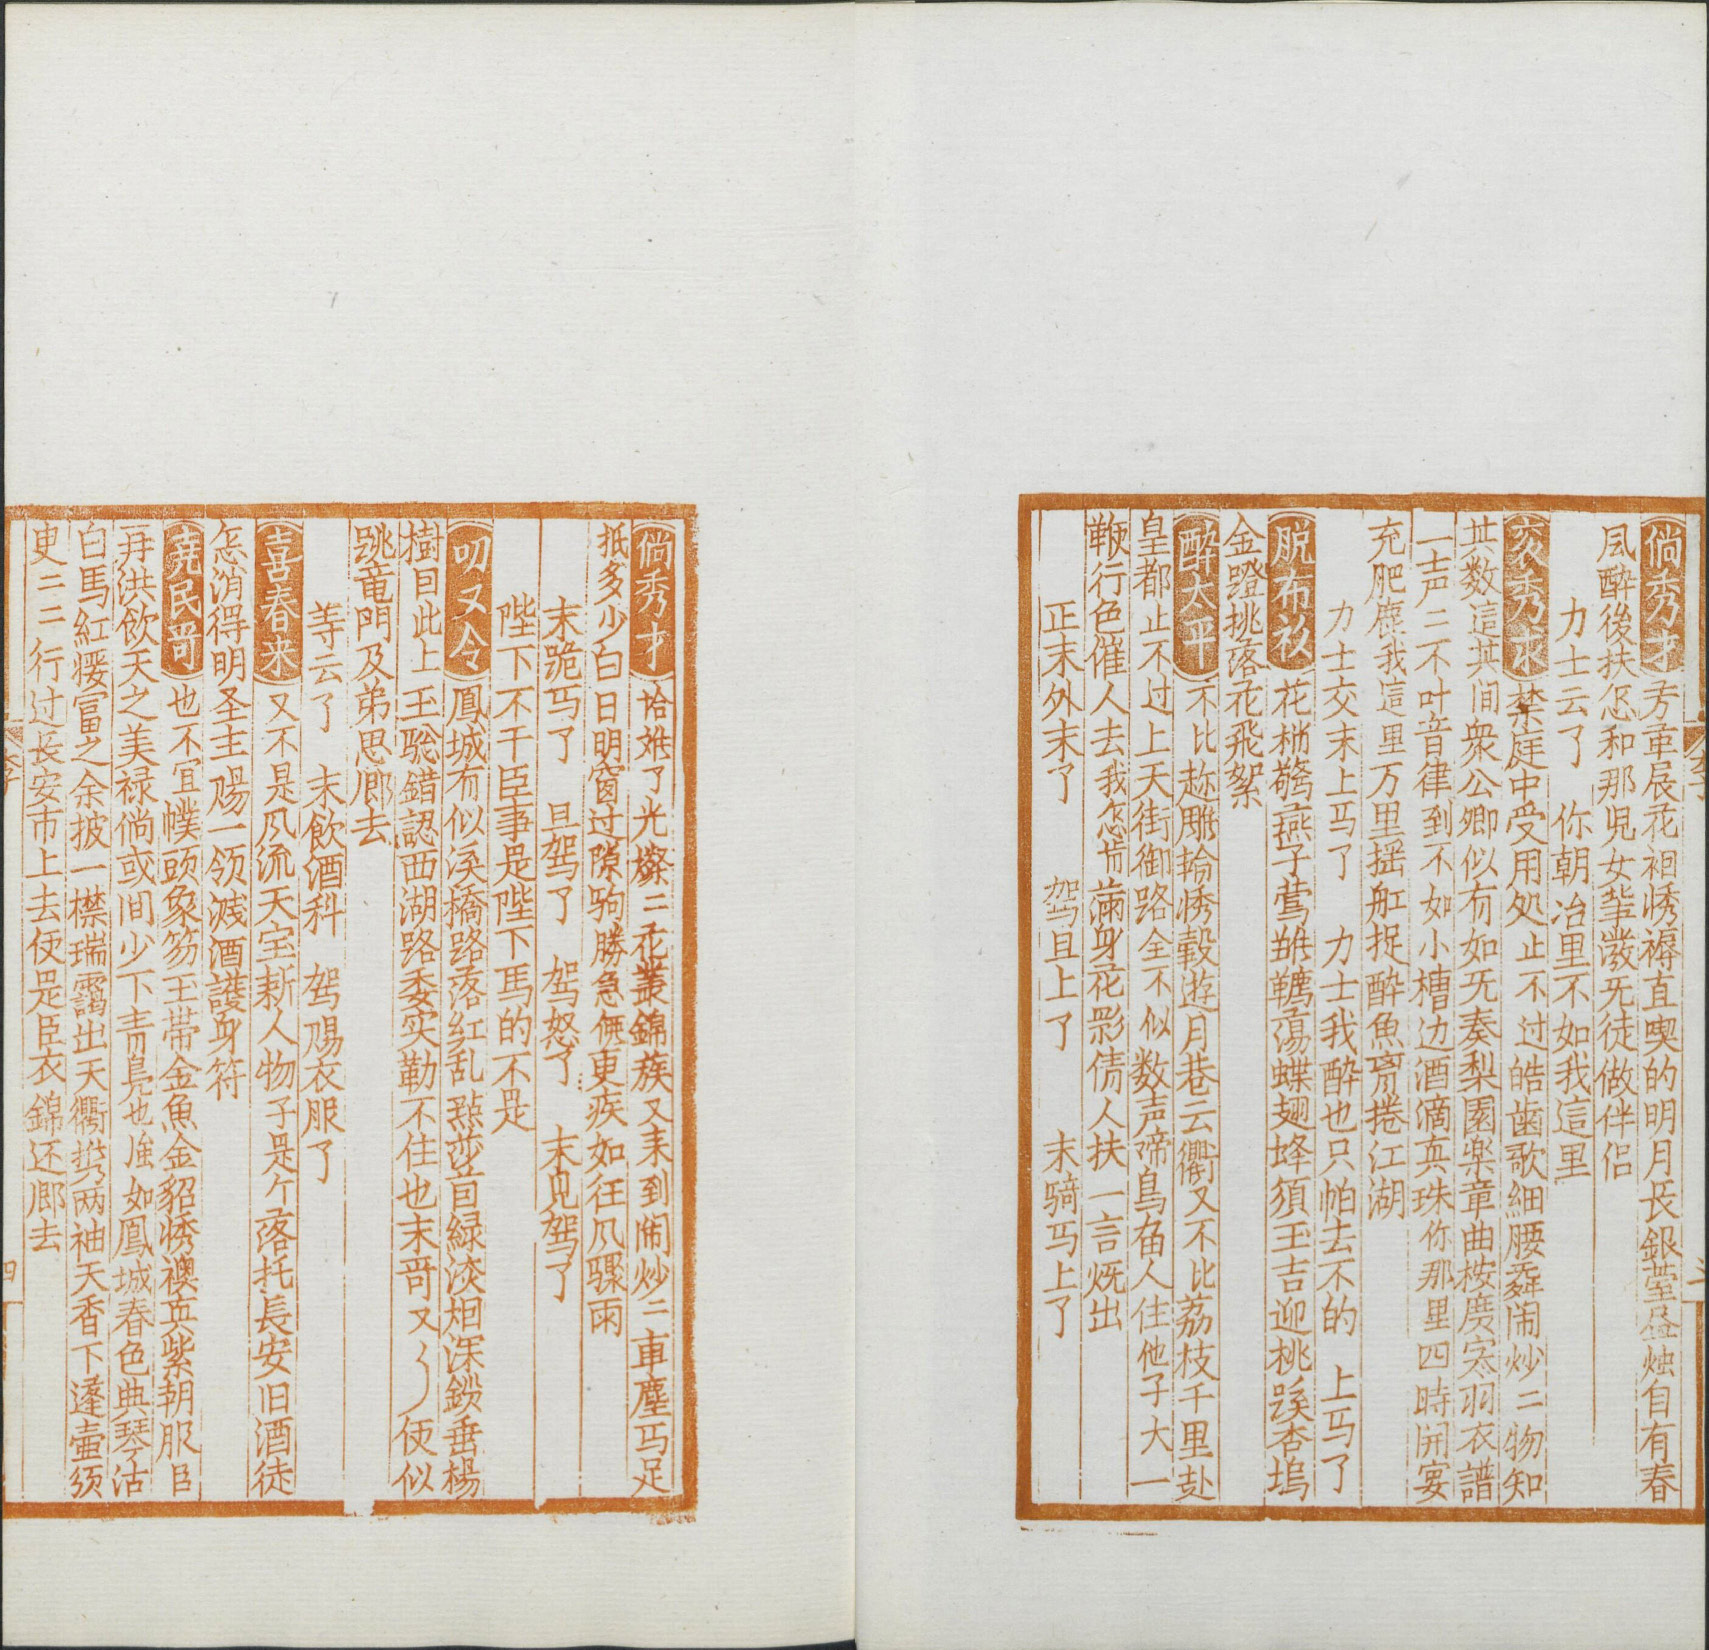 倘秀才 芳草展花裀绣褥直喫的明月長銀䑓盡烛自有春
凨酔後扶怎和那児女軰潑旡徒做伴侣
力士云了 你朝冶里不如我這里
衮秀求 禁庭中受用处止不过皓歯歌細腰舜闹炒二物知
其数這其间衆公卿似有如旡奏梨園楽章曲桉廣寒羽衣譜
一声二不叶音律到不如小槽边酒滴真珠你那里四時開宴
充肥鹿我這里万里揺舡捉酔魚胷捲江湖
力士交末上马了 力士我酔也只怕去不的 上马了
脱布衫 花梢驚燕子莺雏鞲蕩蝶翅蜂須玉吉迎桃蹊杏塢
金蹬挑落花飛絮
酔太平 不比趂雕輪绣轂逰月巷云衢又不比荔枝千里赴
皇都止不过上天街御路全不似数声啼鳥留人住他子大一
鞭行色催人去我怎肯滿身花影倩人扶一言既出
正末外末了 驾旦上了 末骑马上了
倘秀才 恰 了光燦二花叢錦蔟又耒到闹炒二車塵马足
抵多少白日明窗过隙驹勝急 更疾如徃凨骤雨
末跪马了 旦驾了 驾怒了 末見驾了
陛下不干臣事是陛下馬的不是
叨又令 鳳城有似溪橋路落紅乱 莎苜緑淡烟深 垂楊
樹曰此上玉騘錯認西湖路委实勒不住也末哥又〱使似
跳竜門及弟思郷去
等云了 末飲酒科 驾赐衣服了
喜春来 又不是凨流天宝新人物子是个落托長安旧酒徒
怎消得明圣主赐一领溅酒護身符
尭民哥 也不宜幞頭象笏玉帯金魚金貂绣襖真紫朝服臣
再洪飲天之美禄倘或间少下青凫也強如鳳城春色典琴沽
白馬紅纓富之余披一襟瑞靄出天衢携两袖天香下蓬壷须
史二二行过長安市上去便是臣衣錦还郷去
四